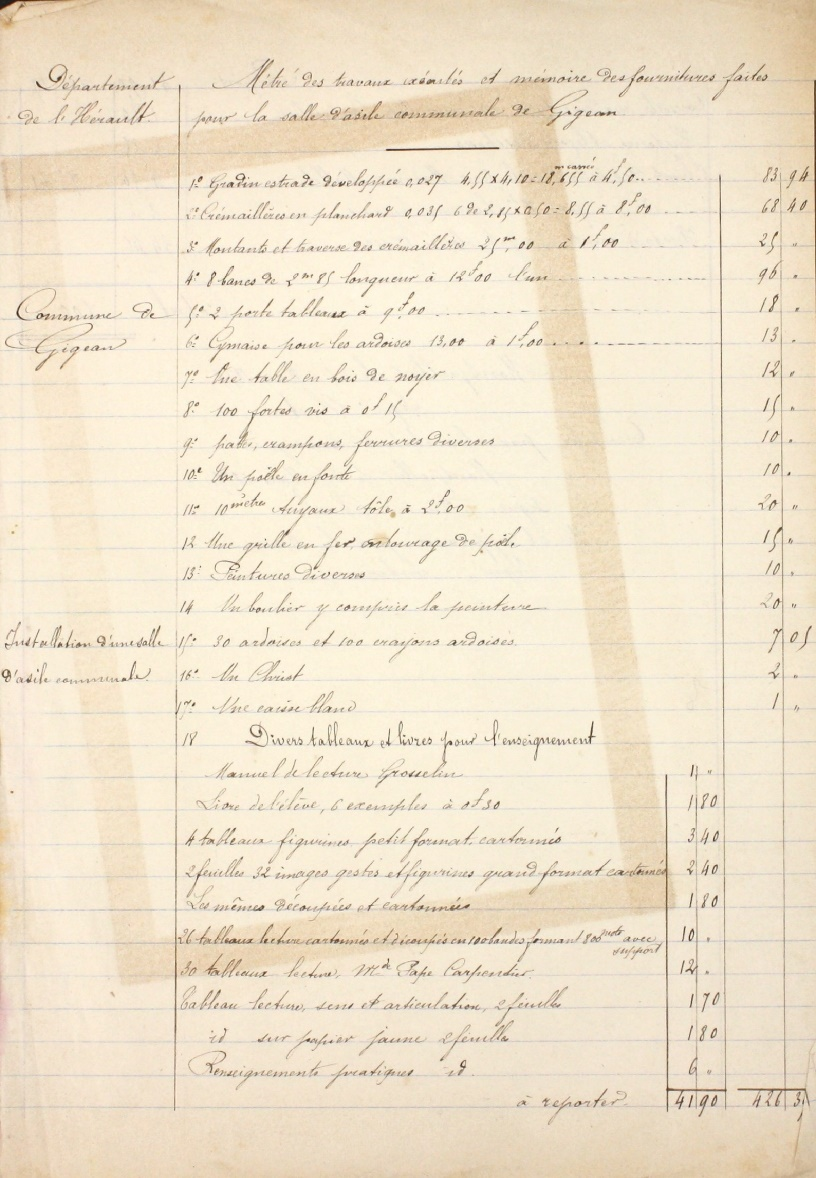 Département
de l'Hérault
Métré des travaux exécutés et mémoire des fournitures faites
pour la salle d'asile communale de Gigean
1º Gradin estrade développée 0,027 4,55 x 4,10 = 18,655 m carrés à 4f,50 83 94
2º Crémaillères en planchard 0,035 6 de 2,85 x 0,50 = 8,55 à 8f,00 68 40
3º Montants et traverse des crémaillères 25m,00 à 1f,00 25 "
4º 8 bancs de 2m85 longueur à 12f00 l'un 96 "
Commune de
Gigean
5º 2 porte tableaux à 9f,00 18 "
6º Cymaise pour les ardoises 13,00 à 1f,00 13 "
7º Une table en bois de noyer 12 "
8º 100 fortes vis à 0f15 15 "
9º pattes, crampons, ferrures diverses 10 "
10º Un poêle en fonte 10 "
11º 10 mètres tuyaux tôle à 2f,00 20 "
12 Une grille en fer, entourage de poêle 15 "
13º Peintures diverses 10 "
14 Un boulier y compris la peinture 20 "
Installation d'une salle
d'asile communale.
15º 30 ardoises et 100 crayons ardoises 7 05
16º Un Christ 2 "
17º Une caisse blanc 1 "
18 Divers tableaux et livres pour l'enseignement
Manuel de lecture Grosselin 1 "
Livre de l'élève, 6 exemples à 0f30 1 80
4 tableaux figurines petit format, cartonnés 3 40
2 feuilles 32 images gestes et figurines grand format cartonnés 2 40
Les mêmes découpées et cartonnées 1 80
26 tableaux lecture cartonnés et découpés en 100 bandes formant 800 mots avec support 10 "
30 tableaux lecture, Mde Pape Carpentier 12 "
Tableau lecture, sens et articulation, 2 feuilles 1 70
id sur papier jaune 2 feuilles 1 80
Renseignements pratiques id. 6 "
à reporter 41 90 426 35